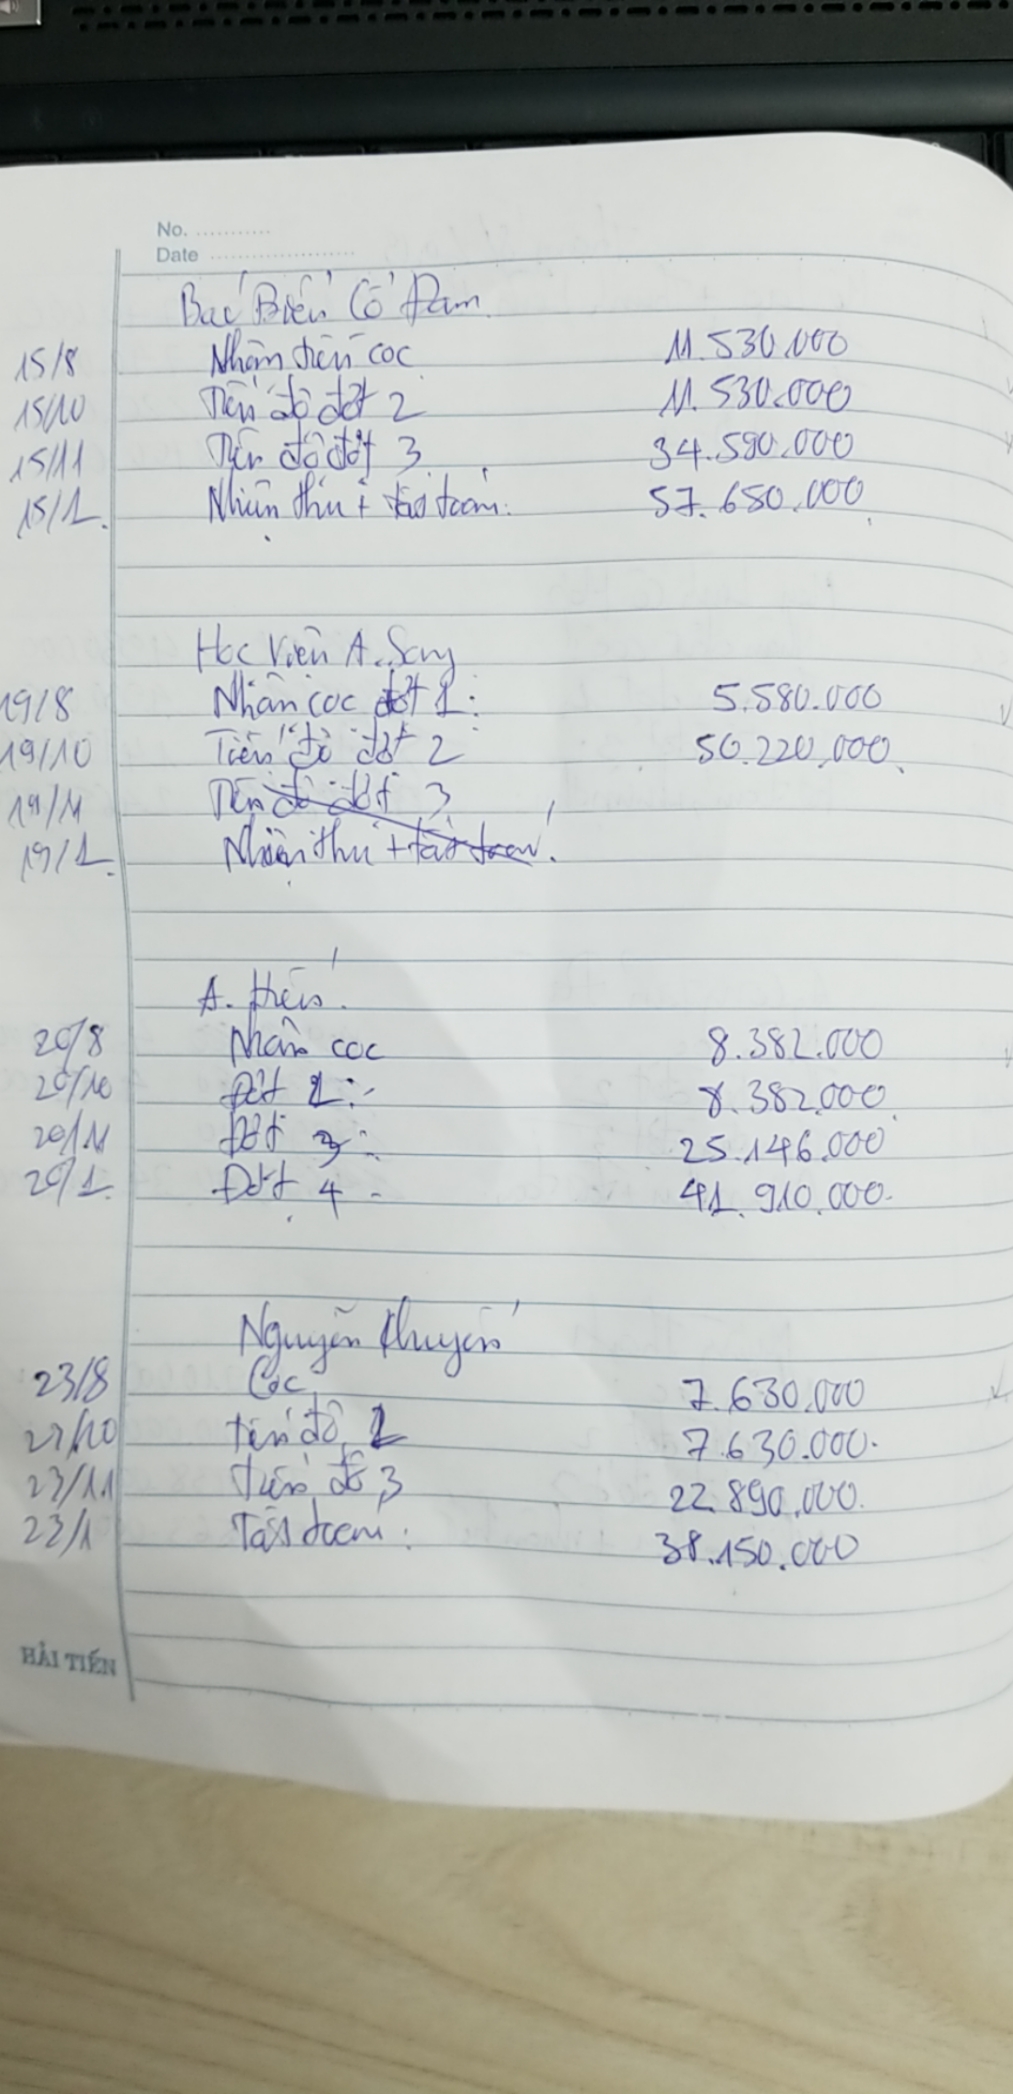 No. ...........
Date ......................
Bác Biên Cổ Đam.
15/8 Nhận tiền cọc 11.530.000
15/10 Tiến độ đợt 2 11.530.000
15/11 Tiến độ đợt 3 34.590.000
15/1. Nhiệm thu + tất toán. 57.650.000
Học Viện A. Song
19/8 Nhận cọc đợt 1: 5.580.000
19/10 Tiến độ đợt 2 50.220.000.
19/11 Tiến độ đợt 3
19/1. Nhiệm thu + tất toán.
A. Hiến.
20/8 Nhận cọc 8.382.000
20/10 Đợt 2: 8.382.000
20/11 Đợt 3: 25.146.000
20/1. Đợt 4 - 41.910.000.
Nguyễn Khuyến
23/8 Cọc 7.630.000
23/10 tiến độ 2 7.630.000.
23/11 tiến độ 3 22.890.000.
23/1 Tất toán: 38.150.000
HẢI TIẾN